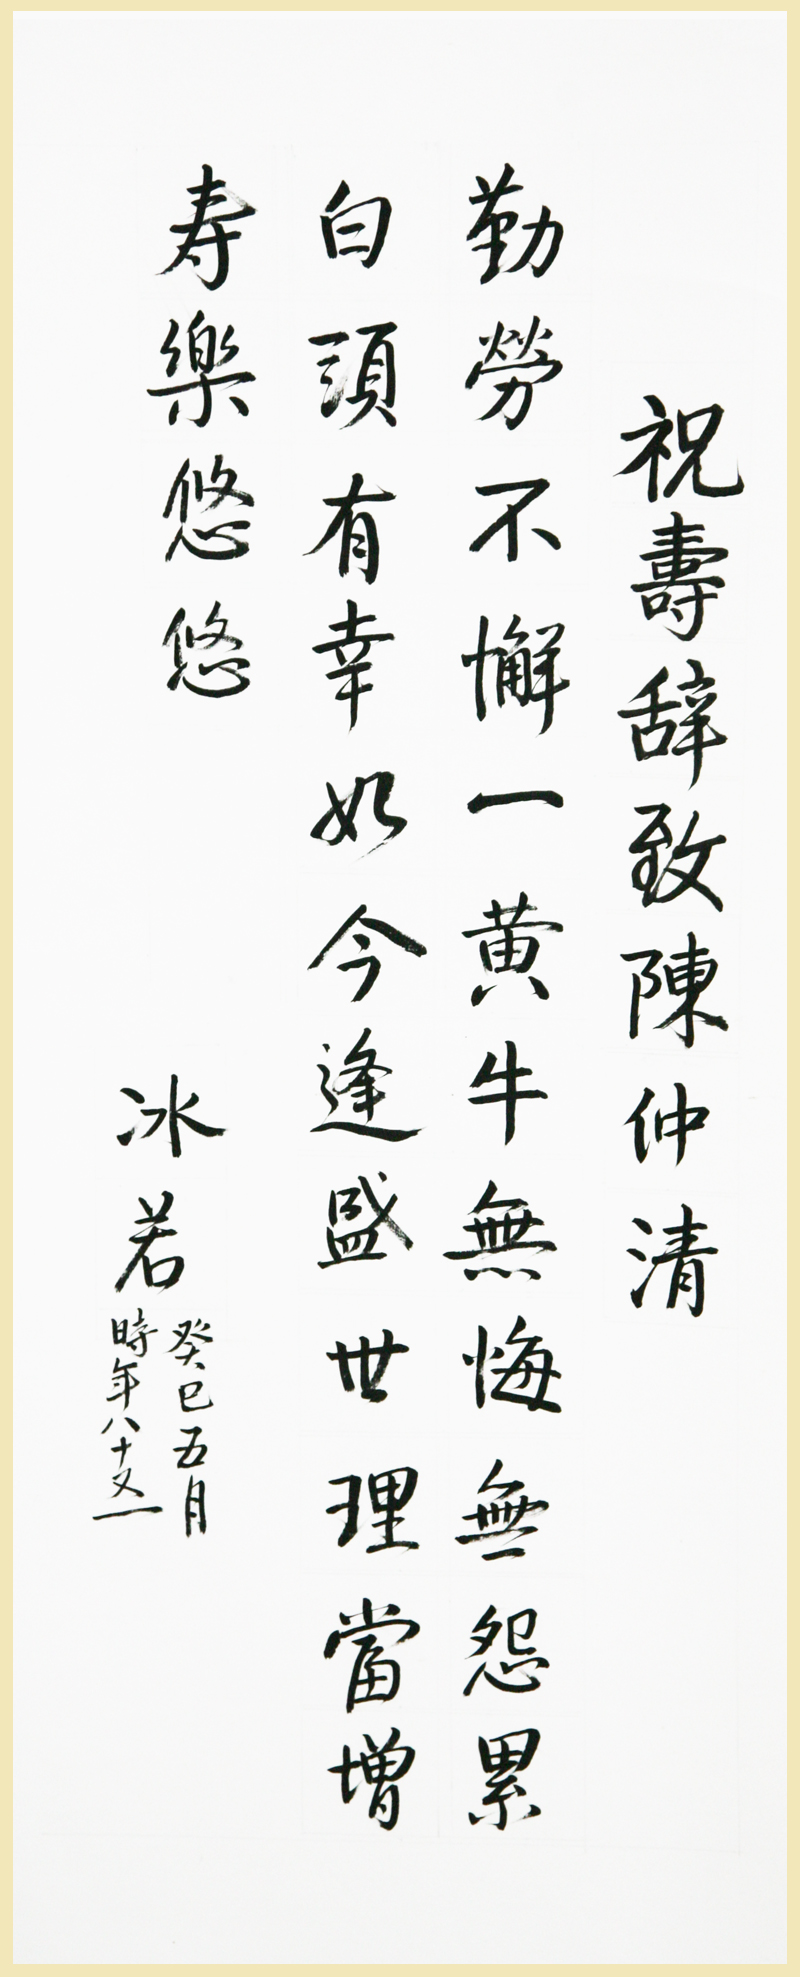 祝壽辞致陳仲清
勤勞不懈一黄牛無悔無怨累
白頭有幸如今逢盛世理當增
寿樂悠悠
冰若
癸巳五月
時年八十又一